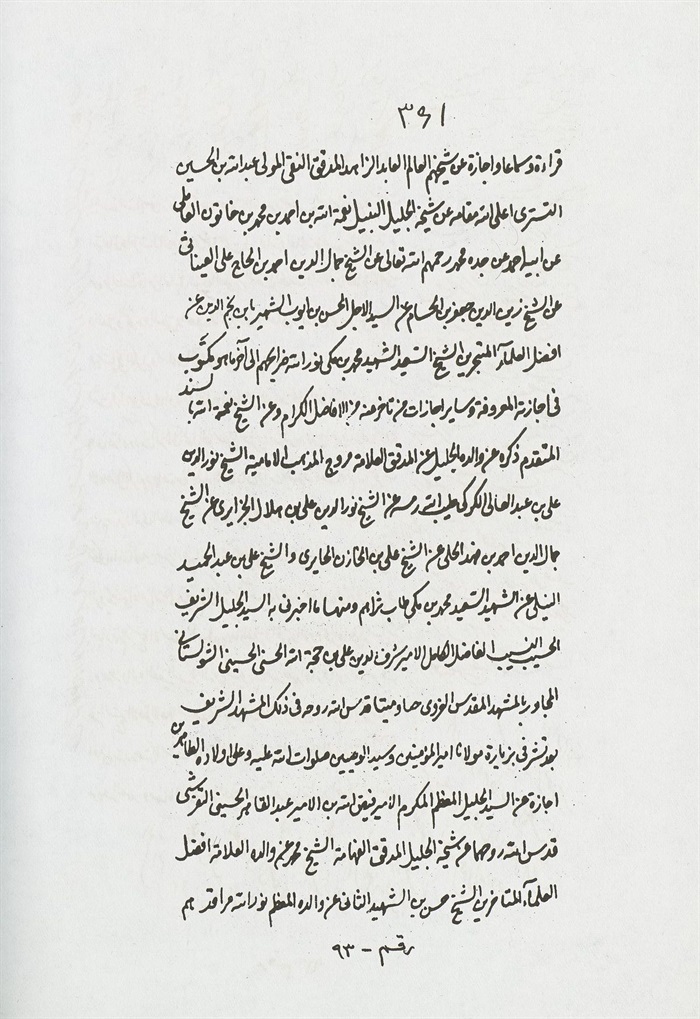 ٣٩١
قراءة وسماعا واجازة عن شيخهم العالم العابد الزاهد المدقق التقى المولى عبد الله بن الحسين
التسترى اعلى الله مقامه عن شيخه الجليل النبيل نعمة الله بن احمد بن محمد بن خاتون العاملى
عن ابيه احمد عن جده محمد رحمهم الله تعالى عن الشيخ جمال الدين احمد بن الحاج على العيناثى
عن الشيخ زين الدين جعفر بن الحسام عن السيد الاجل الحسن بن ايوب الشهير بابن نجم الدين عن
افضل العلمآء المتبحرين الشيخ السعيد الشهيد محمد بن مكى نور الله ضرايحهم الى آخر ما هو مكتوب
فى اجازته المعروفة وساير اجازات من تاخر عنه من الافاضل الكرام وعن الشيخ نعمة الله بالسند
المتقدم ذكره عن والده الجليل عن المدقق العلامة مروج المذهب الامامية الشيخ نور الدين
على بن عبد العالى الكركى طيب الله رمسه عن الشيخ نور الدين على بن هلال الجزايرى عن الشيخ
جمال الدين احمد بن فهد الحلى عن الشيخ على بن الخازن الحايرى والشيخ على بن عبد الحميد
النيلى عن الشهيد السعيد محمد بن مكى طاب ثراهم ومنها ما اخبرنى به السيد الجليل الشريف
الحسيب النسيب الفاضل الكامل الامير شرف الدين على بن حجة الله الحسنى الحسينى الشولستانى
المجاور بالمشهد المقدس الغروى حيا وميتا قدس الله روحه فى ذلك المشهد الشريف
بعد تشرفى بزيارة مولانا امير المؤمنين وسيد الوصيين صلوات الله عليه وعلى اولاده الطاهرين
اجازة عن السيد الجليل المعظم المكرم الامير فيض الله بن الامير عبد القاهر الحسينى التفرشى
قدس الله روحهما عن شيخه الجليل المدقق الفهامة الشيخ محمد عن والده العلامة افضل
العلمآء المتاخرين الشيخ حسن بن الشهيد الثانى عن والده المعظم نور الله مراقدهم
رقم - ٩٣